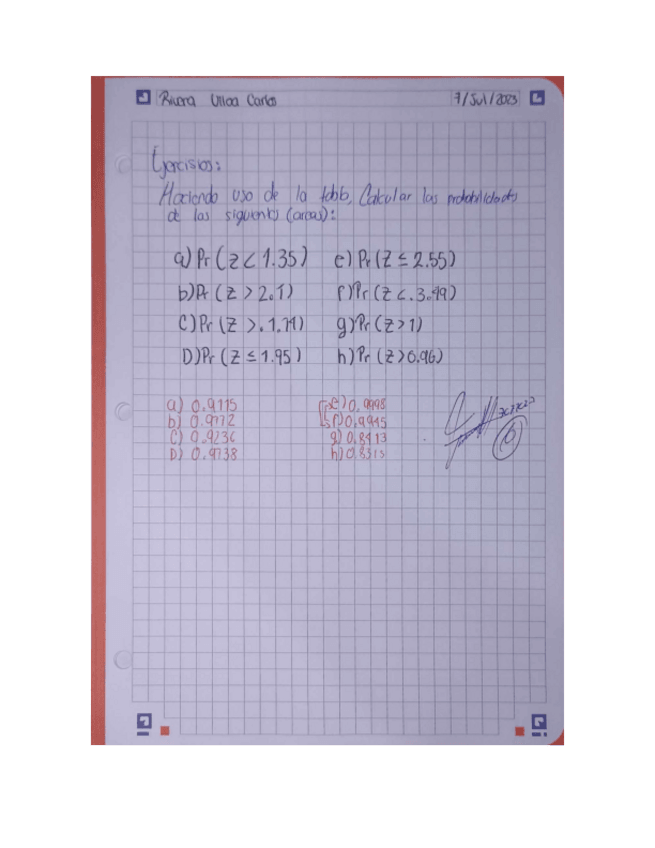 Rivera Ulloa Carlos 7/Jul/2023
Ejercisios:
Haciendo uso de la tabla, Calcular las probabilidades
de las siguients (areas):
a) Pr (Z < 1.35) e) Pr (Z ≤ 2.55)
b) Pr (Z > 2.1) f) Pr (Z <. 3.49)
C) Pr (Z >. 1.71) g) Pr (Z > 1)
D) Pr (Z ≤ 1.95) h) Pr (Z > 0.96)
a) 0.9115 e) 0.9998
b) 0.9772 f) 0.9945
C) 0.9236 g) 0.8413
D) 0.9738 h) 0.8315